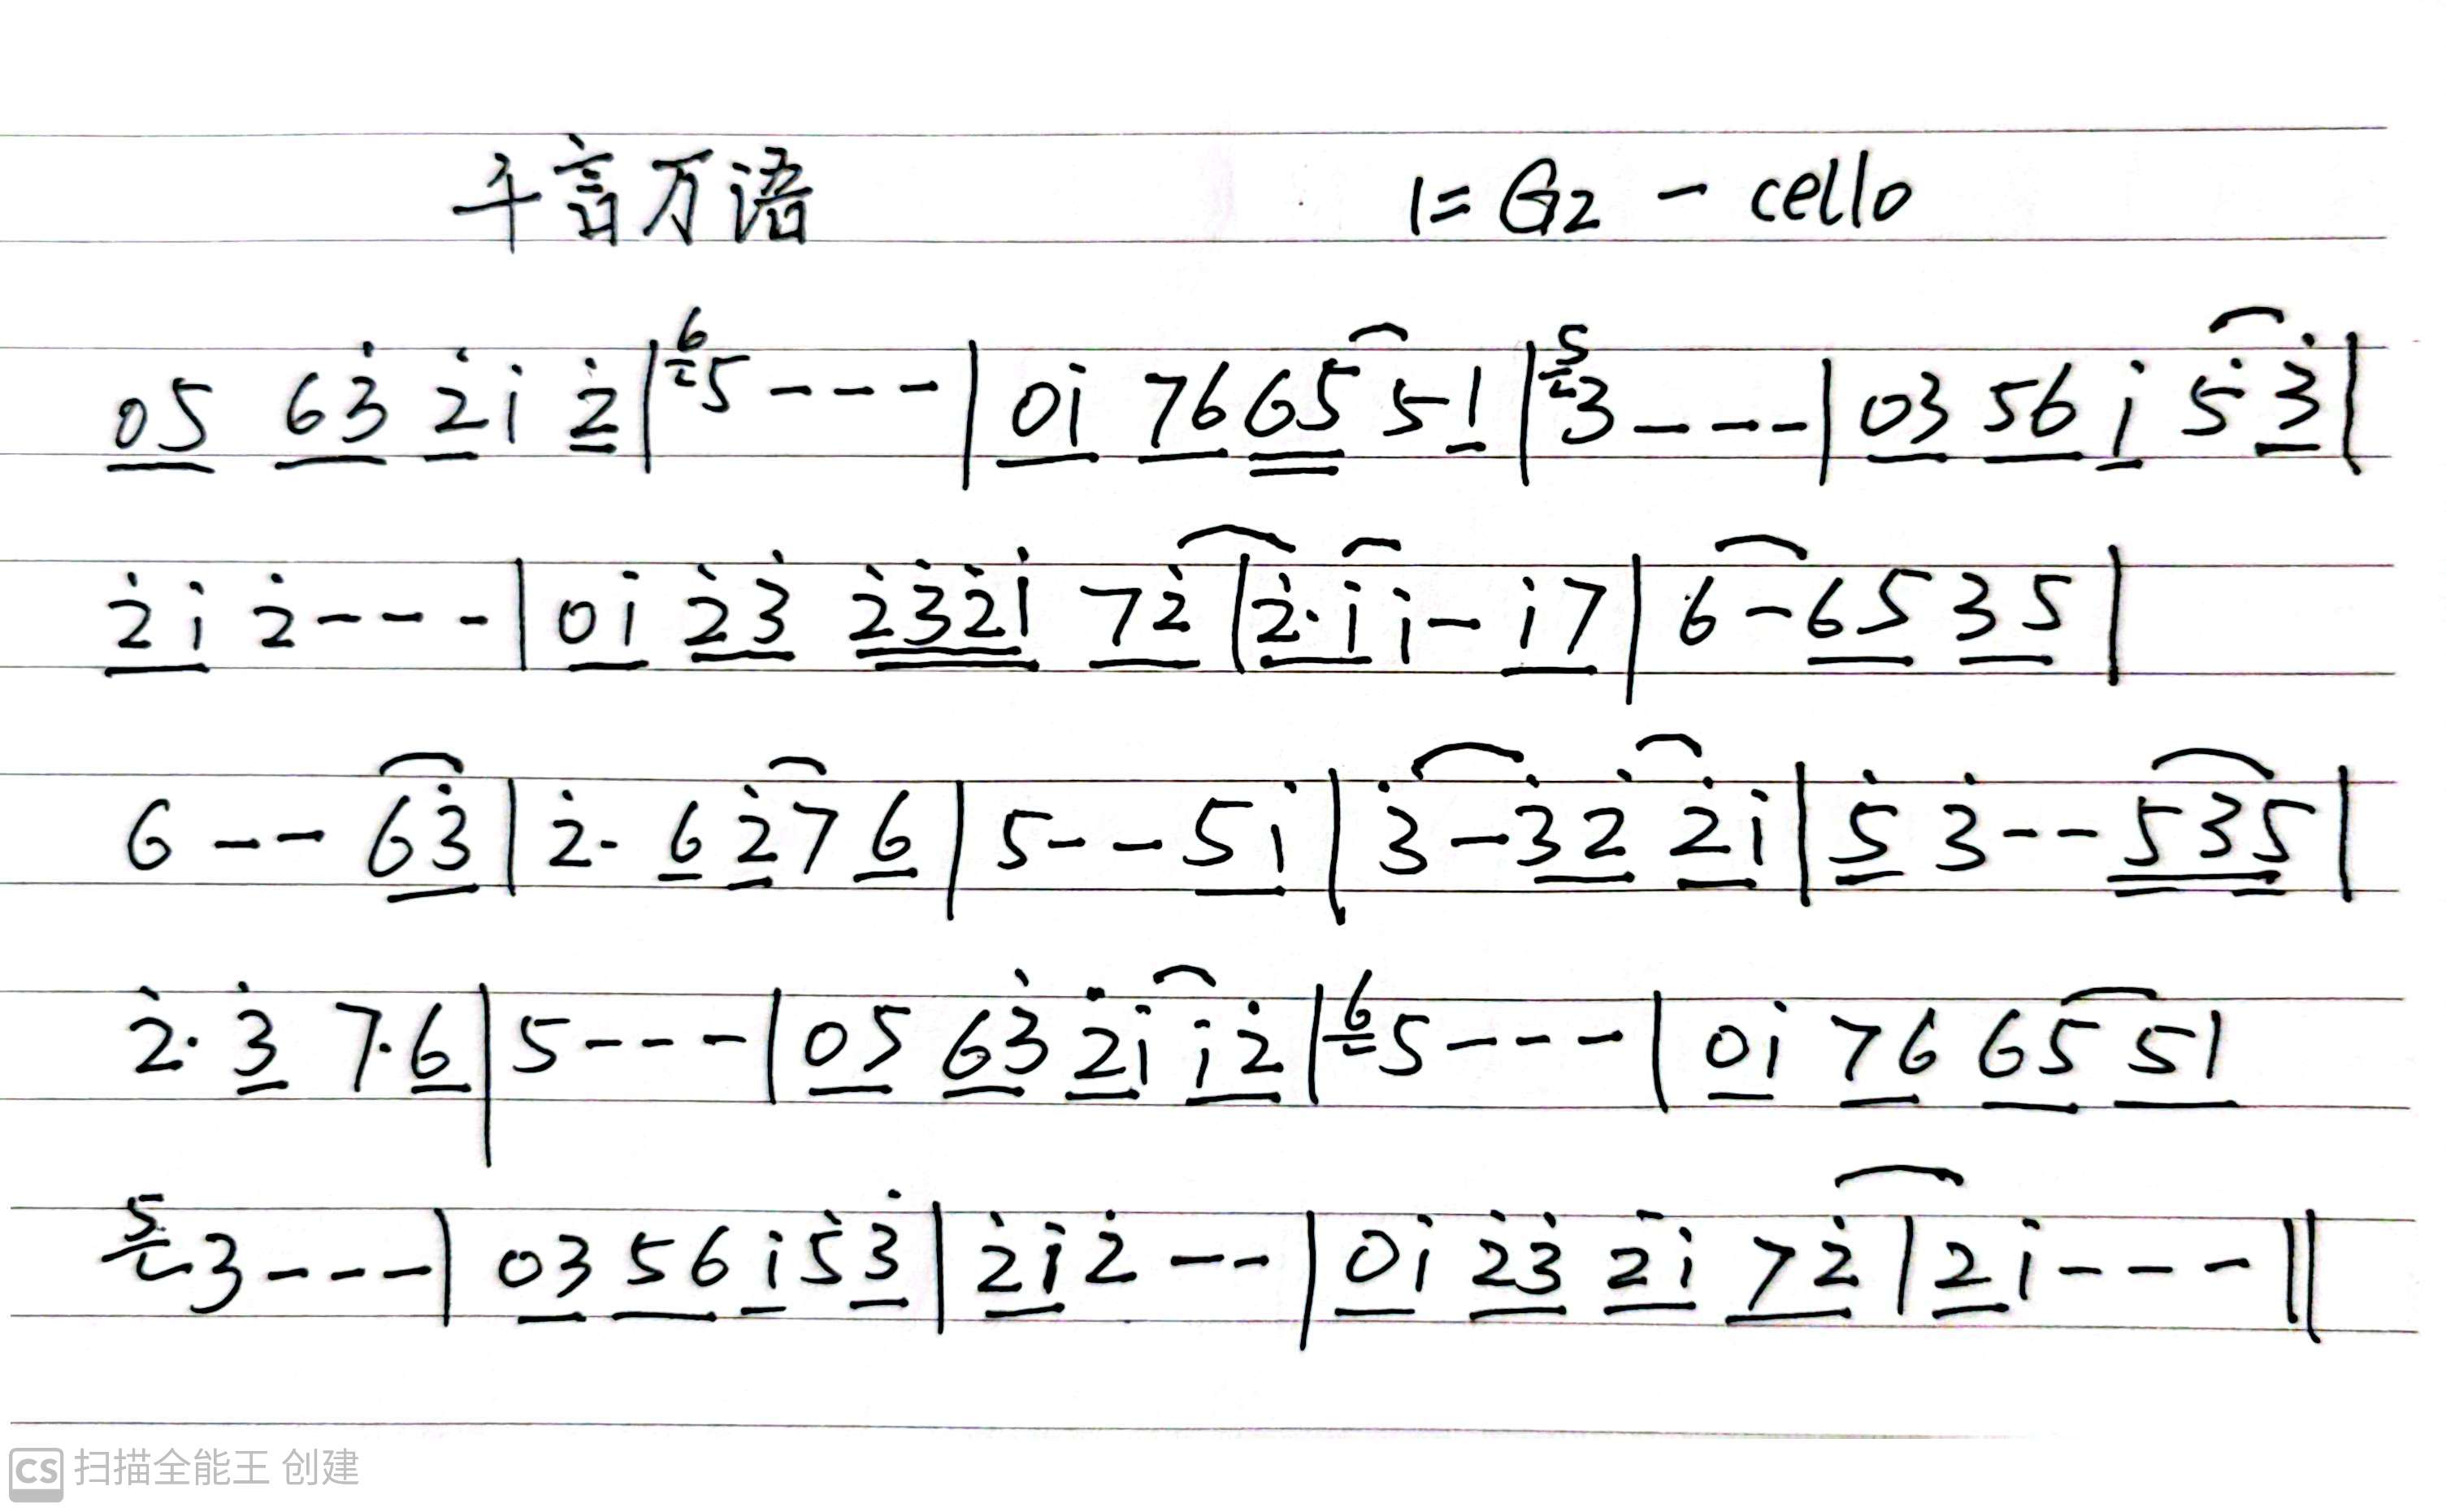 千言万语 1=G2 - cello
05 63̇ 2̇i 2̇ | 6 5--- | 0i 76 65 51 | 5 3--- | 03 56 i 5̇3̇ |
2̇i 2̇--- | 0i 2̇3̇ 2̇3̇2̇i 72̇ | 2̇·i i- i7 | 6-65 35 |
6-- 63̇ | 2̇· 6 2̇7 6 | 5--5i | 3̇-3̇2̇ 2̇i | 5̇ 3̇--535 |
2̇· 3̇ 7·6 | 5--- | 05 63̇ 2̇i i2̇ | 6 5--- | 0i 76 65 51
5 3--- | 03 56 i5̇3̇ | 2̇i2̇-- | 0i 2̇3̇ 2̇i 72̇ | 2̇i--- ||
CS 扫描全能王 创建